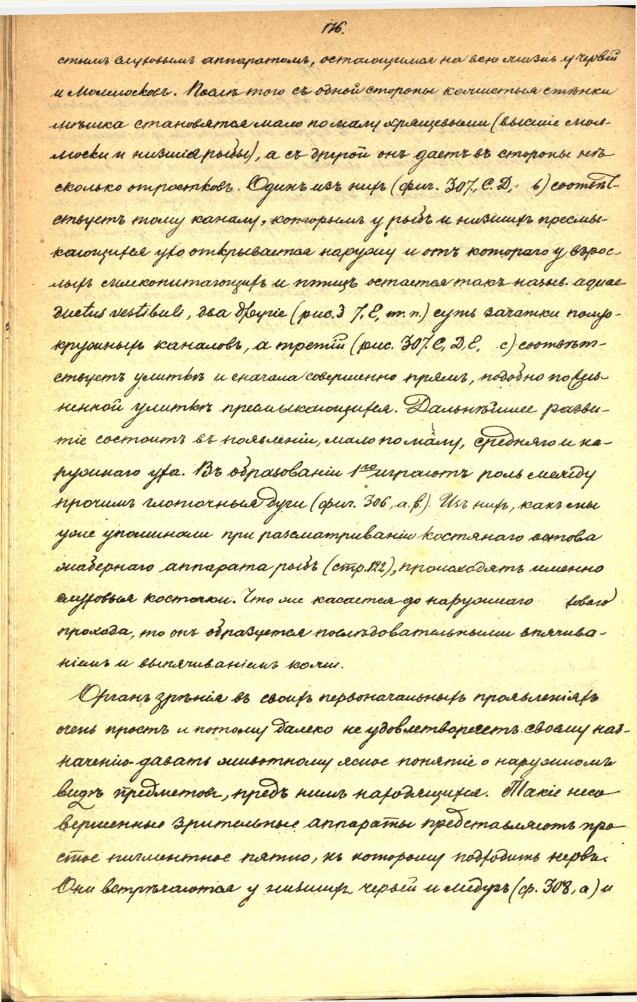 176.
стымъ слуховымъ аппаратомъ, остающимся на всю жизнь у червей
и Моллюсковъ. Послѣ того съ одной стороны кожистыя стѣнки
мѣшка становятся мало по малу хрящевыми (высшіе мол-
люски и низшія рыбы), а съ другой онъ даетъ въ стороны нѣ-
сколько отростковъ. Одинъ изъ нихъ (фиг. 307, С. D, b) соотвѣт-
ствуетъ тому каналу, которымъ у рыбъ и низшихъ пресмы-
кающихся ухо открывается наружу и отъ котораго у взрос-
лыхъ млекопитающихъ и птицъ остается такъ назыв. aquae-
ductus vestibuli, два другіе (рис. 3 7, E, m. n.) суть зачатки полу-
кружныхъ каналовъ, а третій (рис. 307. C, D, E, c) соотвѣт-
ствуетъ улиткѣ и сначала совершенно прямъ, подобно
ненной улиткѣ пресмыкающихся. Дальнѣйшее разви-
тіе состоитъ въ появленіи, мало по малу, средняго и на-
ружнаго уха. Въ образованіи 1го играютъ роль между
прочимъ глоточныя дуги (фиг. 306, а, в). Изъ нихъ, какъ мы
уже упоминали при разсматриваніи костянаго остова
жабернаго аппарата рыбъ (стр. 122), происходятъ именно
слуховыя косточки. Что же касается до наружнаго ховаго
прохода, то онъ образуется послѣдовательными впячива-
ніемъ и выпячиваніемъ кожи.
Органъ зрѣнія въ своихъ первоначальныхъ проявленіяхъ
очень простъ и потому далеко не удовлетворяетъ своему наз-
наченію давать животному ясное понятіе о наружномъ
видѣ предметовъ, предъ нимъ находящихся. Такіе несо-
вершенные зрительные аппараты представляютъ про-
стое пигментное пятно, къ которому подходитъ нервъ.
Они встрѣчаются у низшихъ червей и медузъ (ф. 308, а) и